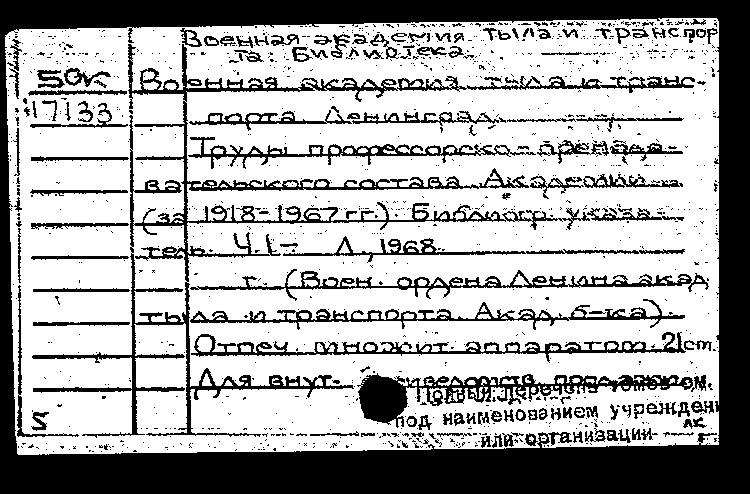 Военная академия тыла и транспор
та. Библиотека.
50к Военная академия тыла и транс-
17133 порта. Ленинград.
Труды профессорско-препода-
вательского состава Академии
(за 1918-1967 гг.). Библиогр. указа-
тель. Ч.1- Л., 1968.
г. (Воен. ордена Ленина акад.
тыла и транспорта. Акад. б-ка).
Отпеч. множит. аппаратом. 21 ст.
Для внут-
Полный перечень томов см.
под наименованием учрежден
или организации